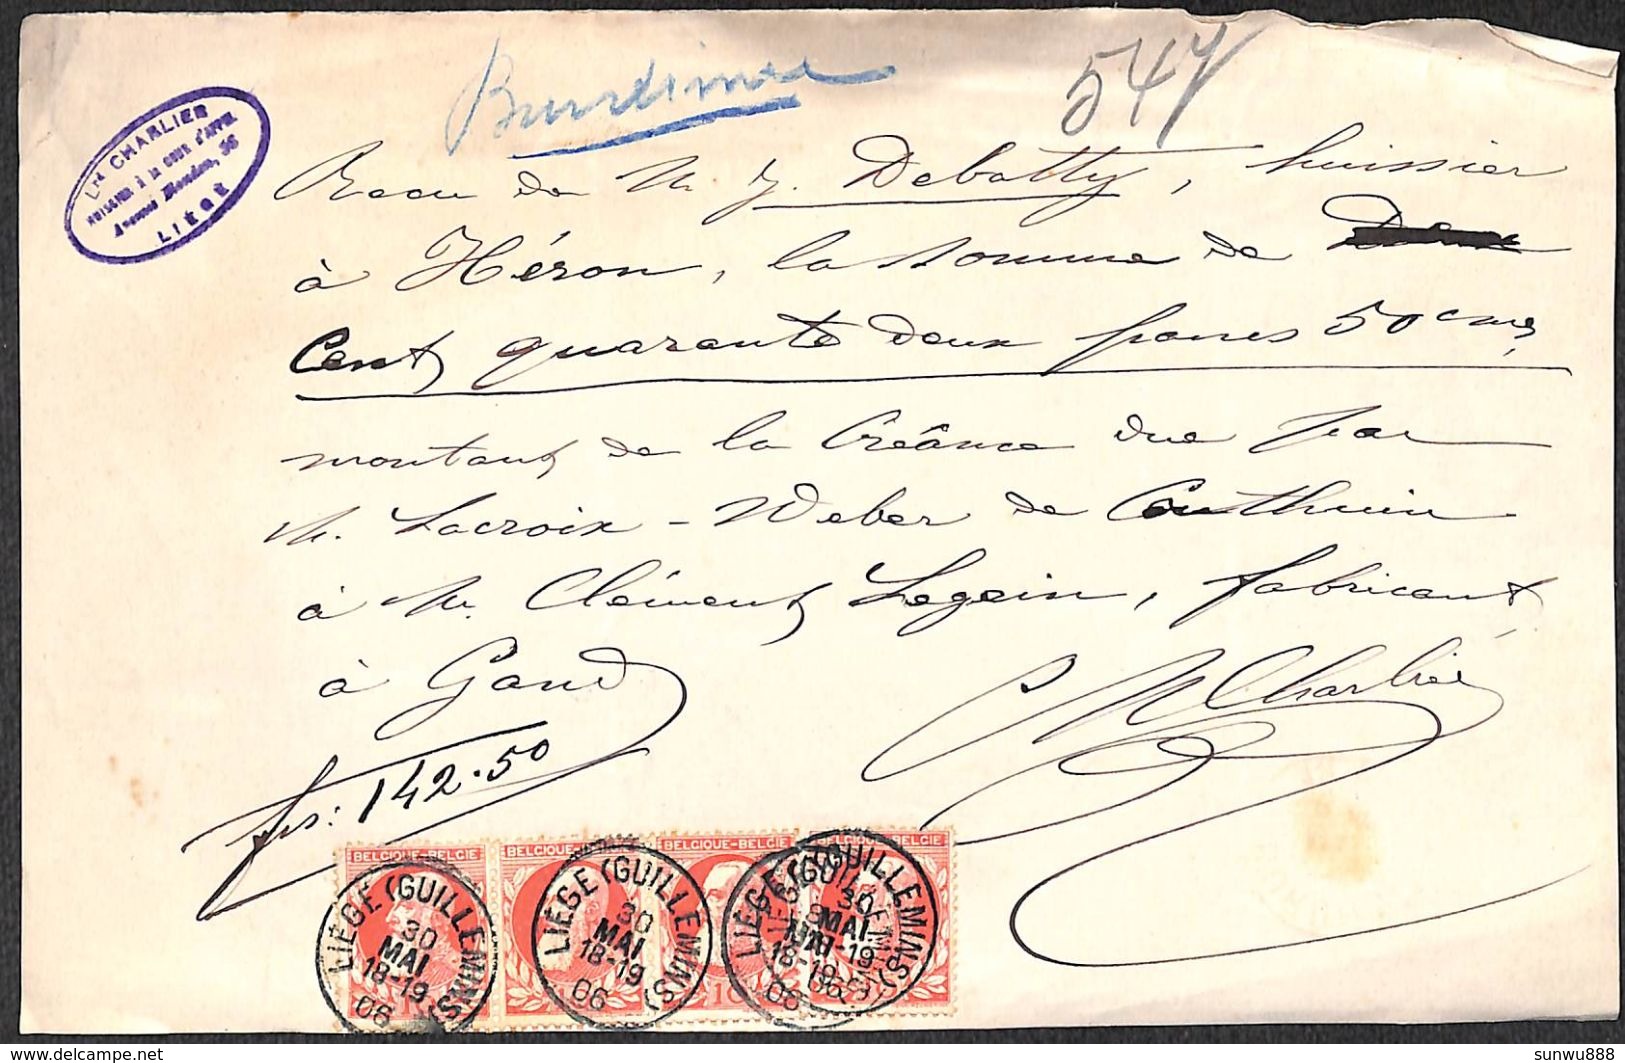 Burdinne
547
Lrd CHARLIER
HUISSIER à la COUR d'APPEL
Avenue Blonden, 36
LIÉGE
Recu de M J. Debatty, huissier
à Héron, la somme de
Cent quarante deux francs 50 cmes
montant de la Créance due par
M. Lacroix-Weber de Couthuin
à M. Clément Legein, fabricant
à Gand
Charlier
frs: 142.50
BELGIQUE-BELGIE BELGIQUE-BELGIE BELGIQUE-BELGIE BELGIQUE-BELGIE
LIÉGE (GUILLEMINS) 30 MAI 18-19 06
LIÉGE (GUILLEMINS) 30 MAI 18-19 06
LIÉGE (GUILLEMINS) 30 MAI 18-19 06
LIÉGE (GUILLEMINS) 30 MAI 18-19 06
delcampe.net
sunwu888